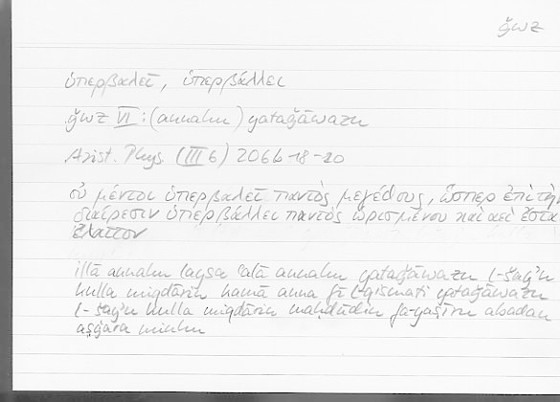 ǧwz
ὑπερβαλεῖ, ὑπερβάλλει
ǧwz VI : (annahu) yataǧāwazu
Arist. Phys. (III 6) 206b 18-20
οὐ μέντοι ὑπερβαλεῖ παντὸς μεγέθους, ὥσπερ ἐπὶ τὴν
διαίρεσιν ὑπερβάλλει παντὸς ὡρισμένου καὶ ἀεὶ ἔσται
ἔλαττον
illā annahu laysa ʿalā annahu yataǧāwazu l-šayʾu
kulla miqdārin kamā anna fī l-qismati yataǧāwazu
l-šayʾu kulla miqdārin maḥdūdin fa-yaṣīru abadan
aṣġara minhu